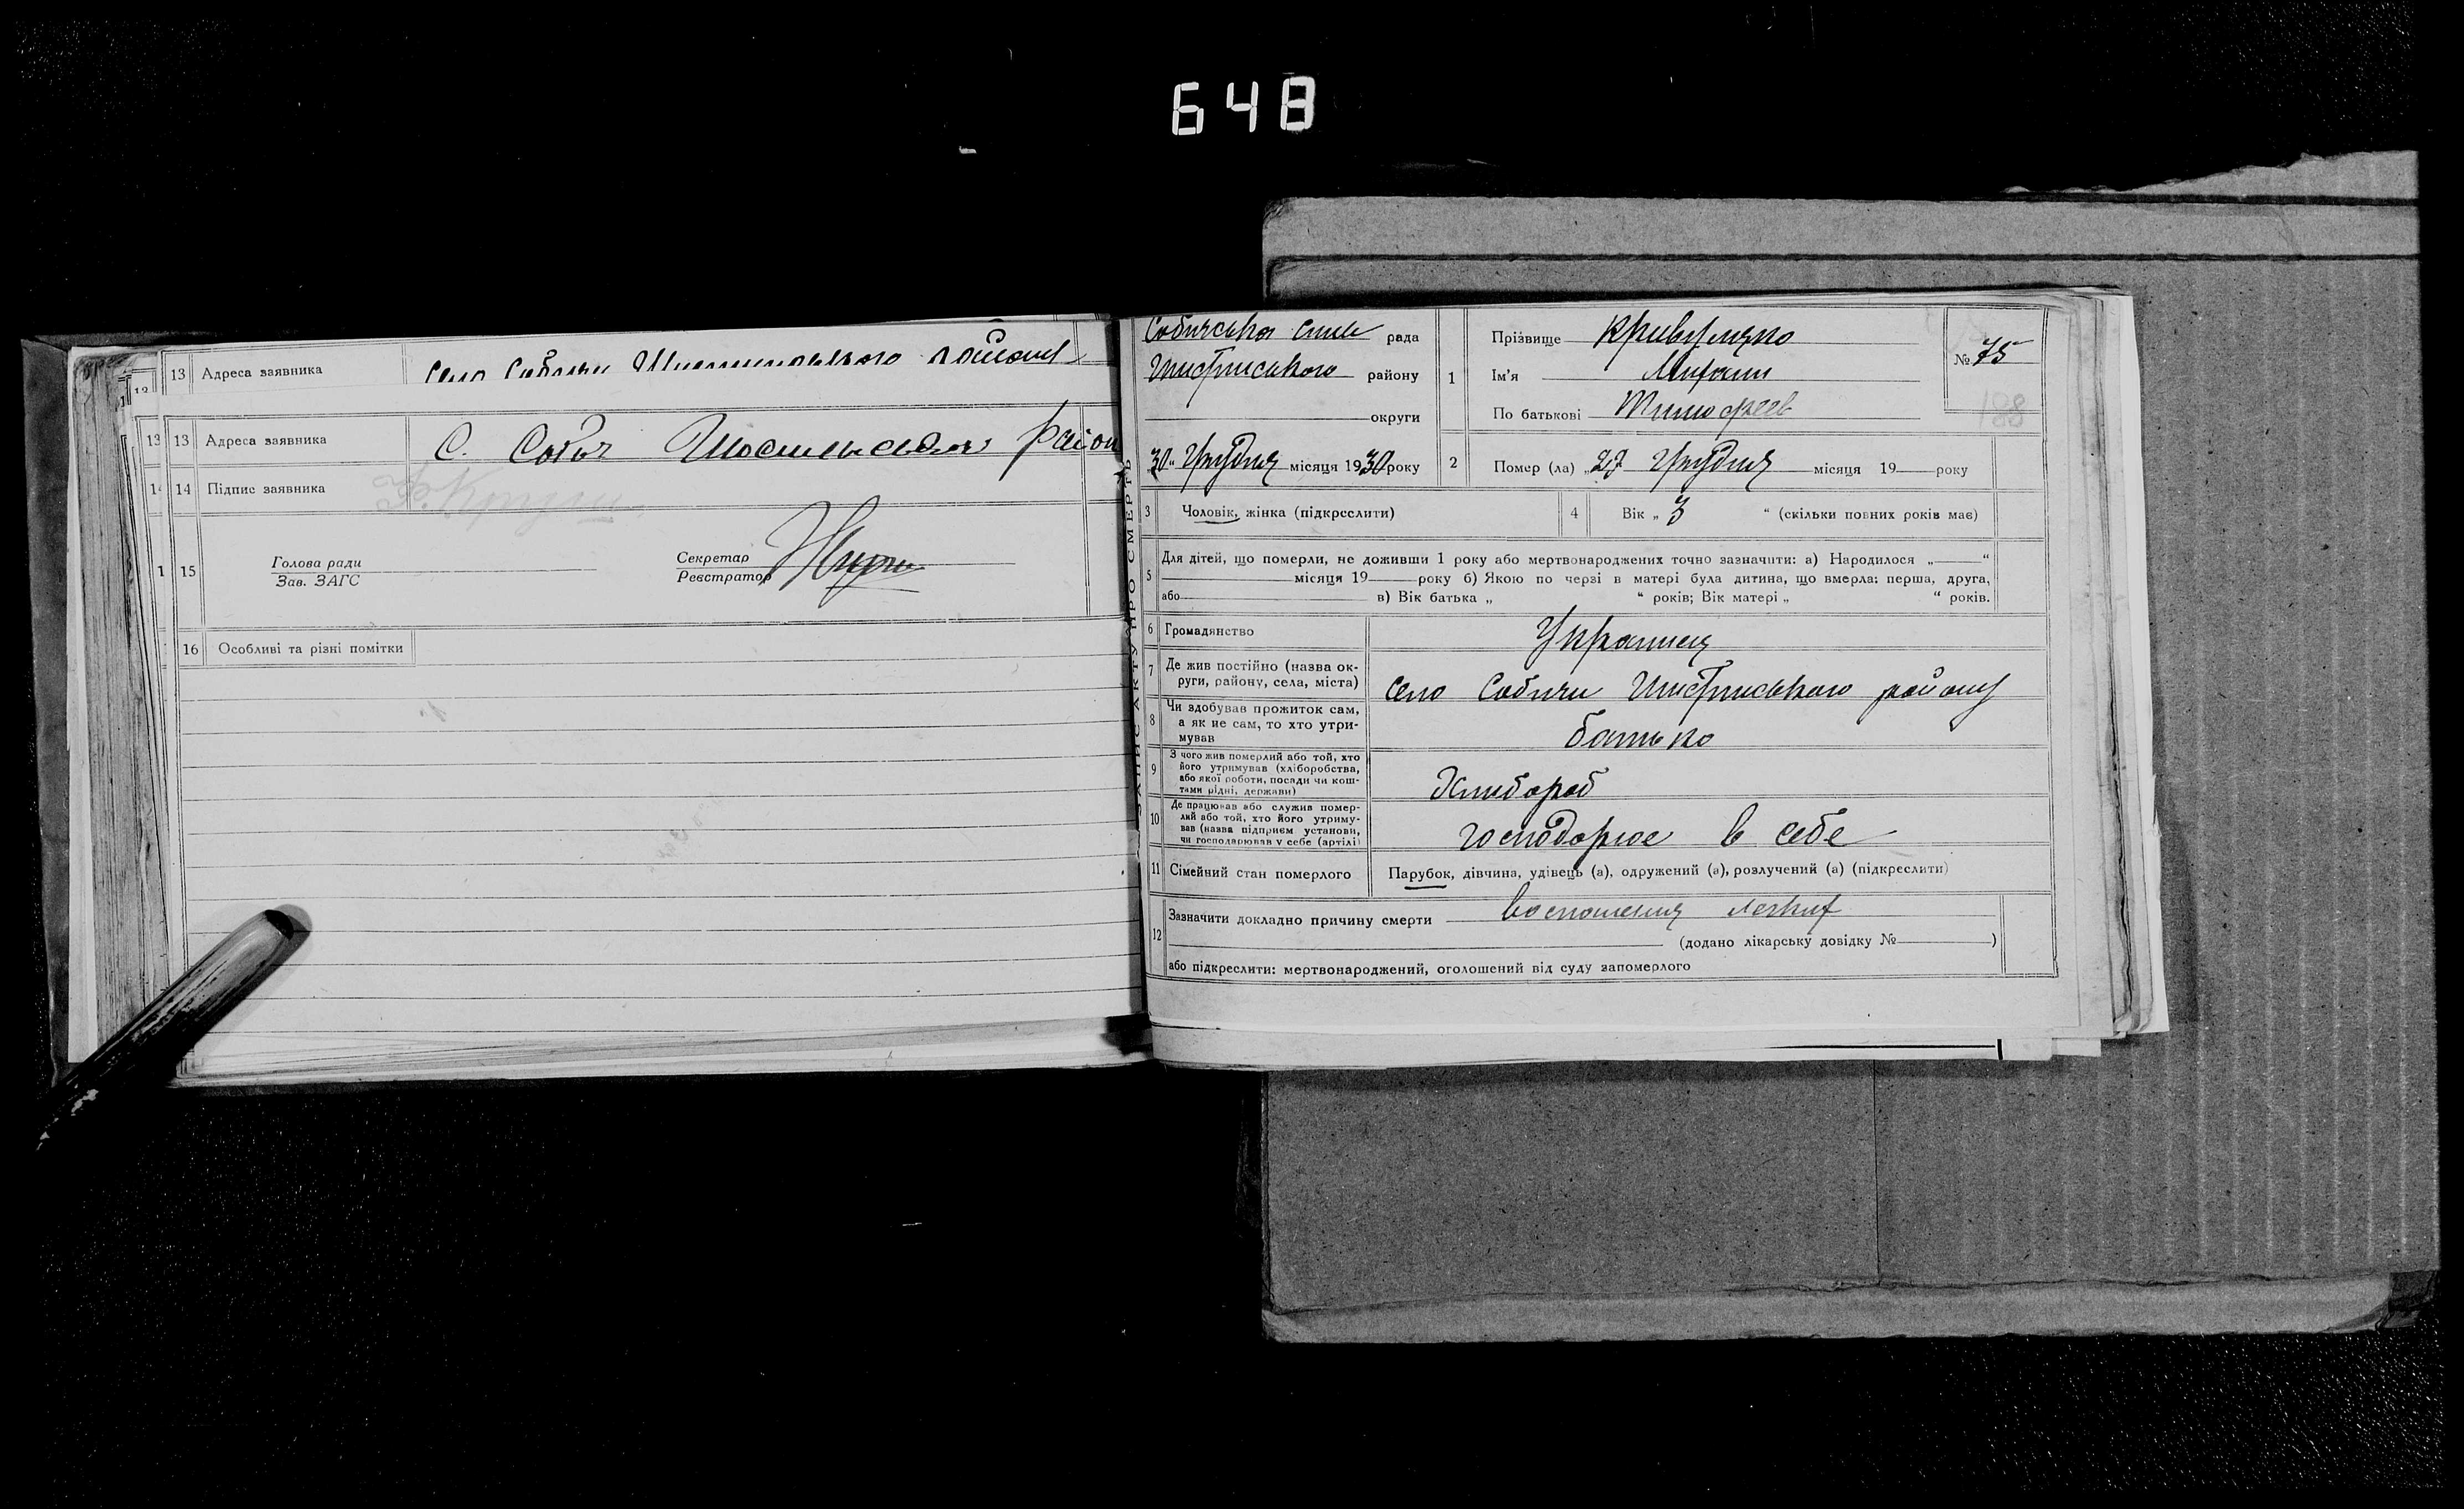 648
13 Адреса заявника
13 13 Адреса заявника С. Собич Шостенського район
14 14 Підпис заявника
15 Голова ради Секретар
Зав. ЗАГС Реєстратор
16 Особливі та різні помітки
ЗАПИС АКТУ ПРО СМЕРТЬ
Собичська рада
району
округи
„30“ Грудня місяця 1930 року
1 Прізвище
Ім'я
По батькові Тимофеев
№ 75
188
2 Помер (ла) „27 Грудня місяця 19 року
3 Чоловік, жінка (підкреслити)
4 Вік „ 3 “ (скільки повних років має)
5 Для дітей, що померли, не доживши 1 року або мертвонароджених точно зазначити: а) Народилося „ “
місяця 19 року б) Якою по черзі в матері була дитина, що вмерла: перша, друга,
або в) Вік батька „ “ років; Вік матері „ “ років.
6 Громадянство Украинец
7 Де жив постійно (назва ок-
руги, району, села, міста) село Собичи району
8 Чи здобував прожиток сам,
а як не сам, то хто утри-
мував батько
9 З чого жив померлий або той, хто
його утримував (хліборобства,
або якої роботи, посади чи кош-
тами рідні, держави) Хлибороб
10 Де працював або служив помер-
лий або той, хто його утриму-
вав (назва підприєм установи,
чи господарював у себе (артілі) господорює в себе
11 Сімейний стан померлого Парубок, дівчина, удівець (а), одружений (а), розлучений (а) (підкреслити)
12 Зазначити докладно причину смерти восполения легких
(додано лікарську довідку № )
або підкреслити: мертвонароджений, оголошений від суду запомерлого